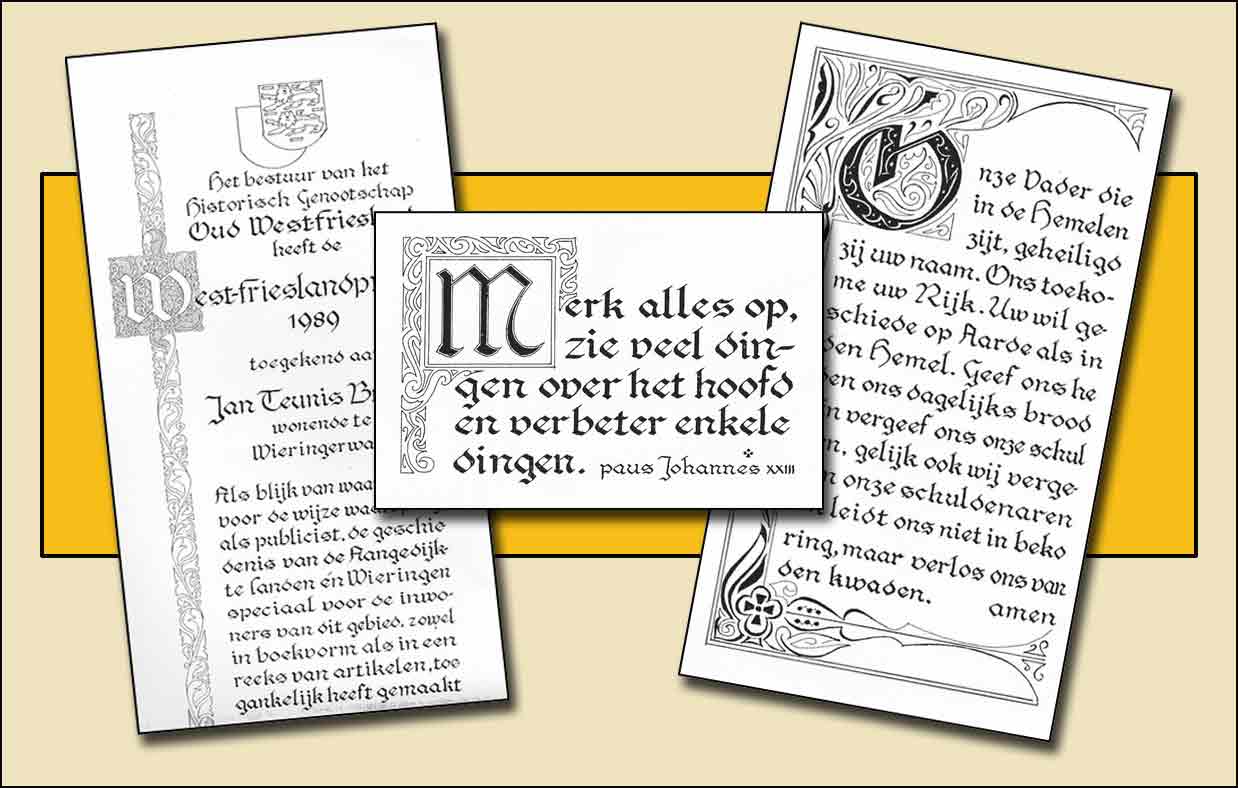 Het bestuur van het
Historisch Genootschap
Oud West-friesland
heeft de
West-frieslandpr
1989
toegekend aa
Jan Teunis B
wonende te
Wieringerwa
Als blijk van waa
voor de wijze waa
als publicist, de geschie
denis van de Aangedijk-
te landen én Wieringen
speciaal voor de inwo-
ners van dit gebied, zowel
in boekvorm als in een
reeks van artikelen, toe
gankelijk heeft gemaakt
Merk alles op,
zie veel din-
gen over het hoofd
en verbeter enkele
dingen. paus Johannes XXIII
Onze Vader die
in de Hemelen
zijt, geheiligd
zij uw naam. Ons toeko-
me uw Rijk. Uw wil ge-
schiede op Aarde als in
den Hemel. Geef ons he
en ons dagelijks brood
n vergeef ons onze schul
n, gelijk ook wij verge-
n onze schuldenaren
leidt ons niet in beko
ring, maar verlos ons van
den kwaden. amen